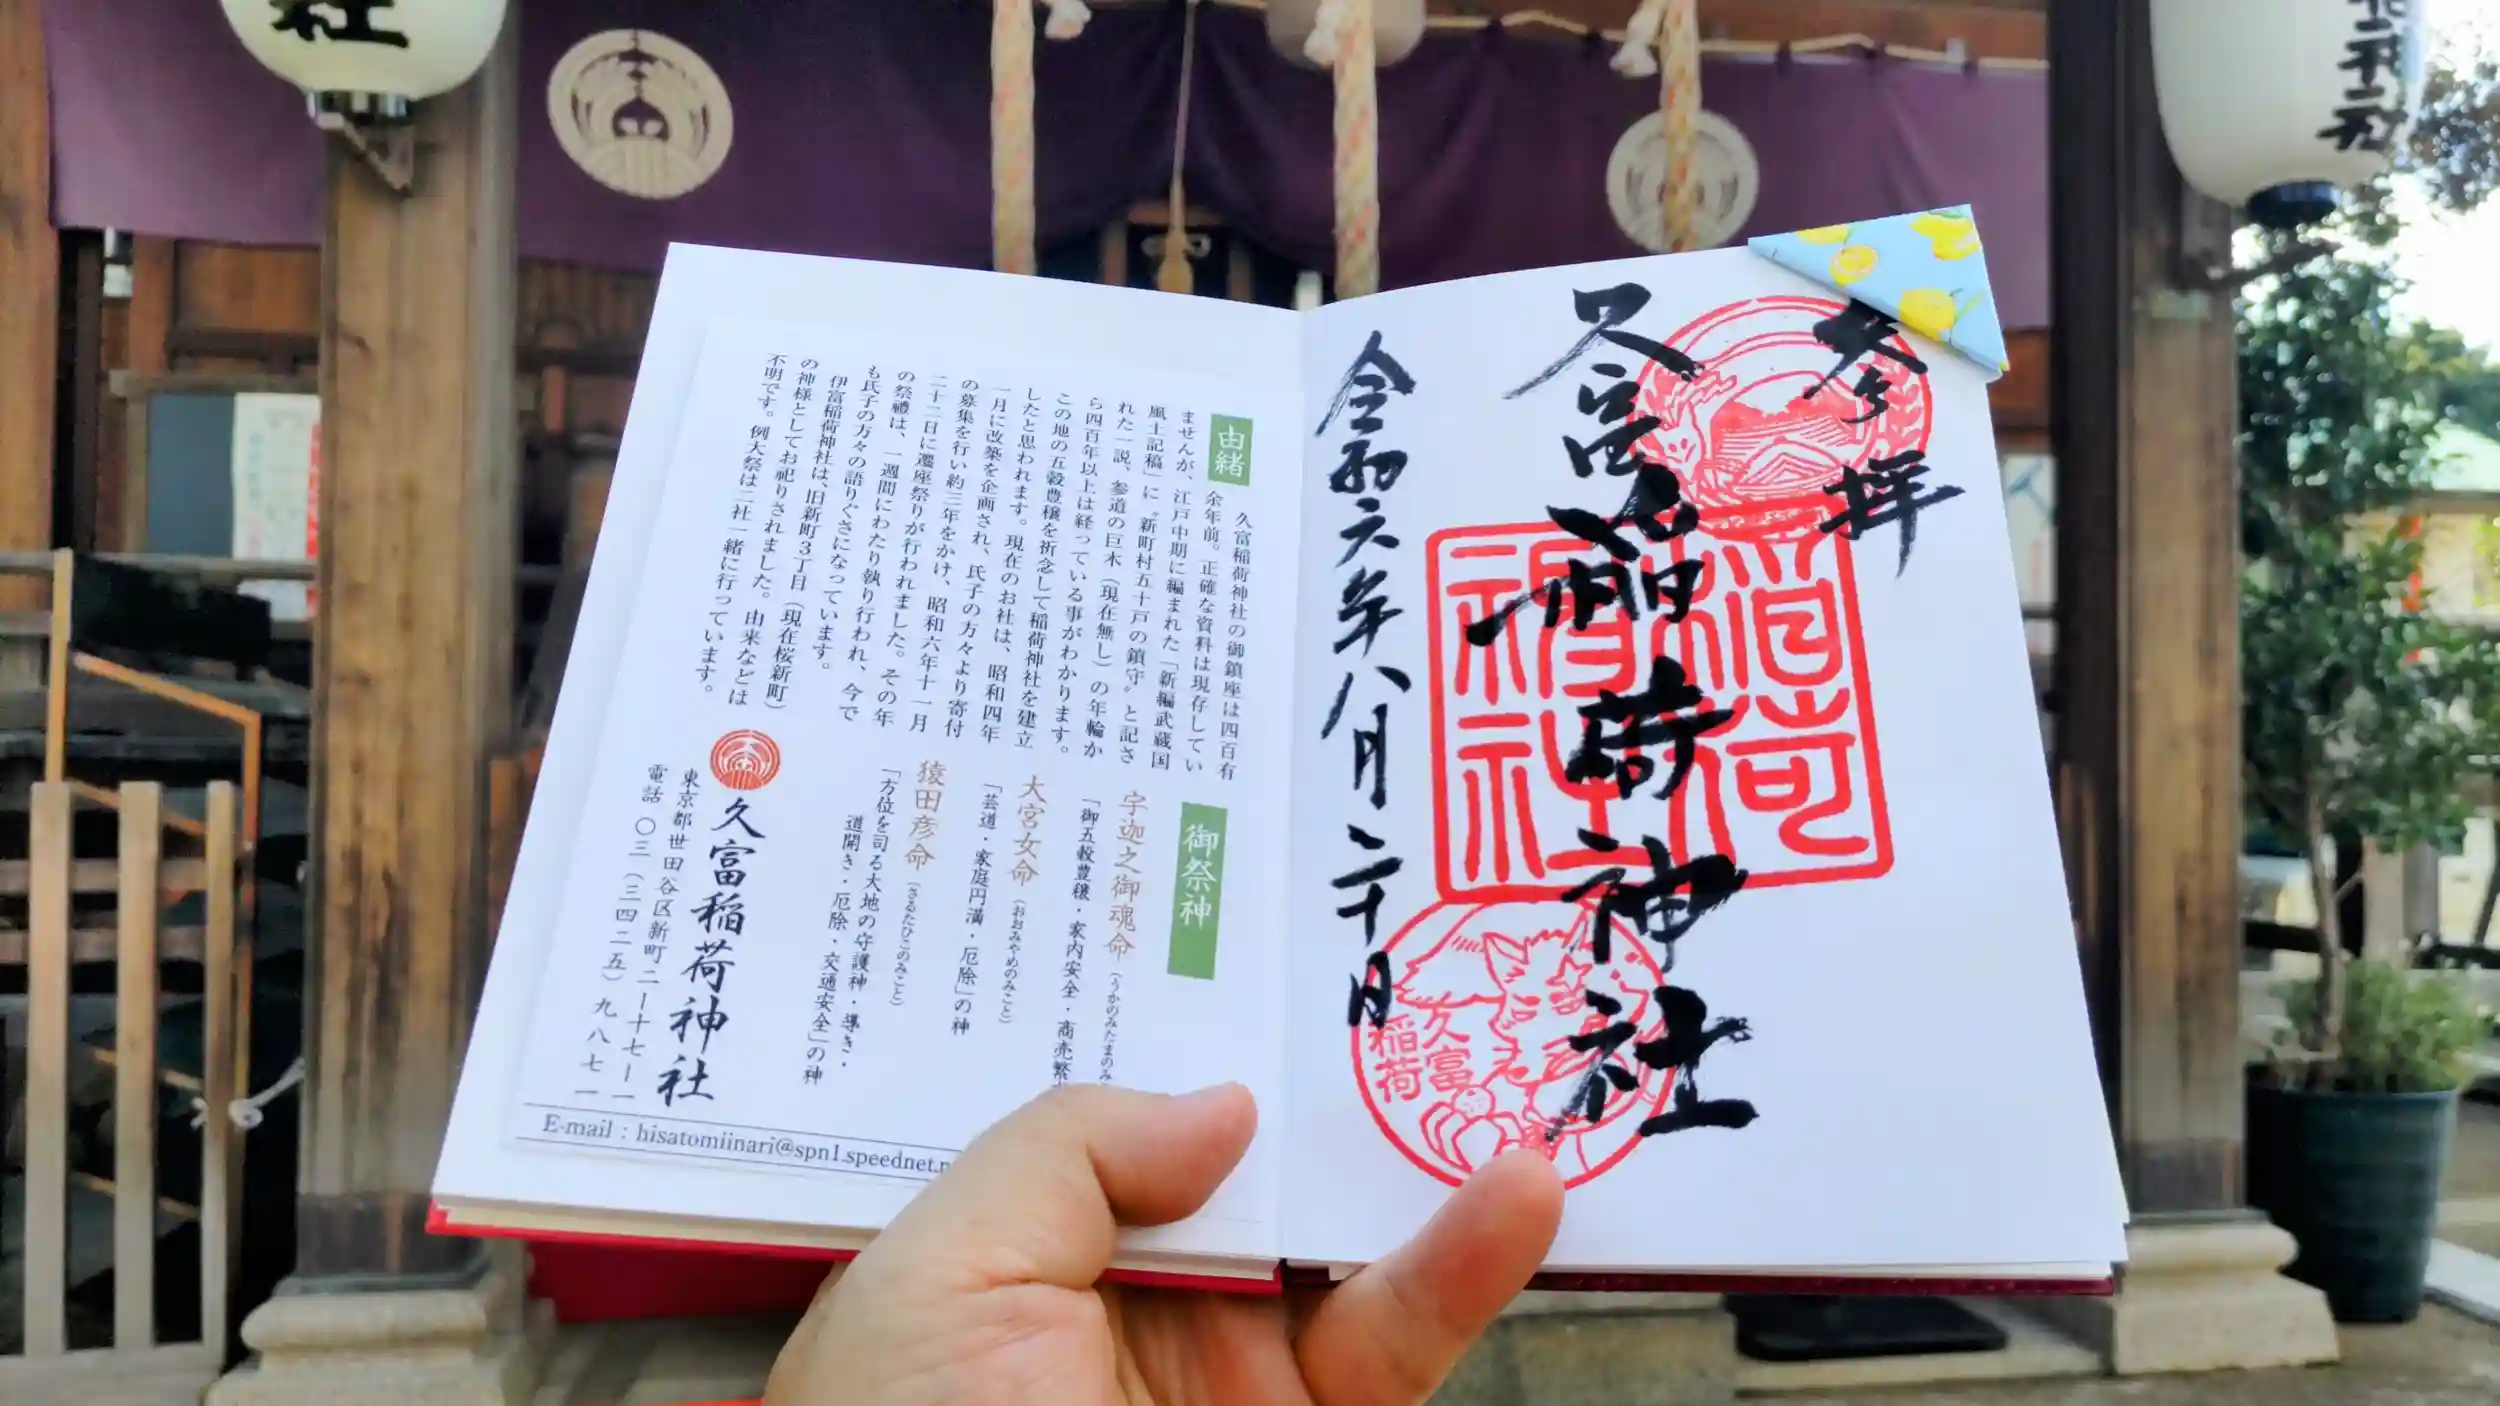 社
稲荷神社
参拝
久富稲荷神社
令和六年八月二十日
稲荷
神社
久富
稲荷
由緒
久富稲荷神社の御鎮座は四百有
余年前。正確な資料は現存してい
ませんが、江戸中期に編まれた「新編武蔵国
風土記稿」に〝新町村五十戸の鎮守〟と記さ
れた一説、参道の巨木（現在無し）の年輪か
ら四百年以上は経っている事がわかります。
この地の五穀豊穣を祈念して稲荷神社を建立
したと思われます。現在のお社は、昭和四年
一月に改築を企画され、氏子の方々より寄付
の募集を行い約三年をかけ、昭和六年十一月
二十二日に遷座祭りが行われました。その年
の祭禮は、一週間にわたり執り行われ、今で
も氏子の方々の語りぐさになっています。
伊富稲荷神社は、旧新町３丁目（現在桜新町）
の神様としてお祀りされました。由来などは
不明です。例大祭は二社一緒に行っています。
御祭神
宇迦之御魂命（うかのみたまのみ
「御五穀豊穣・家内安全・商売繁
大宮女命（おおみやめのみこと）
「芸道・家庭円満・厄除」の神
猿田彦命（さるたひこのみこと）
「方位を司る大地の守護神・導き・
道開き・厄除・交通安全」の神
久富稲荷神社
東京都世田谷区新町二ー十七ー一
電話 〇三（三四二五）九八七一
E-mail : hisatomiinari@spn1.speednet.n